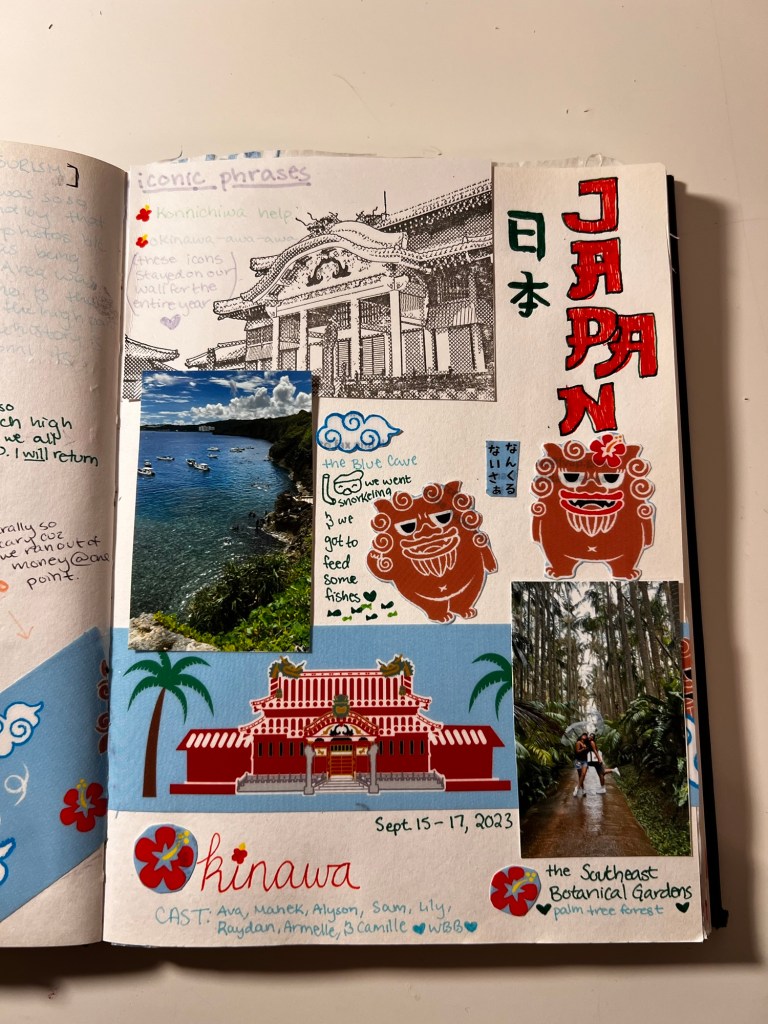 iconic phrases
Konnichiwa help
Okinawa-awa-awa
(these icons
stayed on our
wall for the
entire year)
日本
JAPAN
the Blue Cave
we went
snorkeling
& we
got to
feed
some
fishes
なんくる
ないさぁ
Sept. 15-17, 2023
Okinawa
CAST: Ava, Manek, Alyson, Sam, Lily,
Raydan, Armelle, & Camille WBB
the Southeast
Botanical Gardens
palm tree forest
OURISM]
was so
so
ch high
we all
. I will return
rally so
cary cuz
we ran out of
money @ one
point.